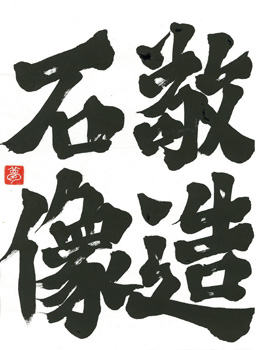 敬造
石像
夢